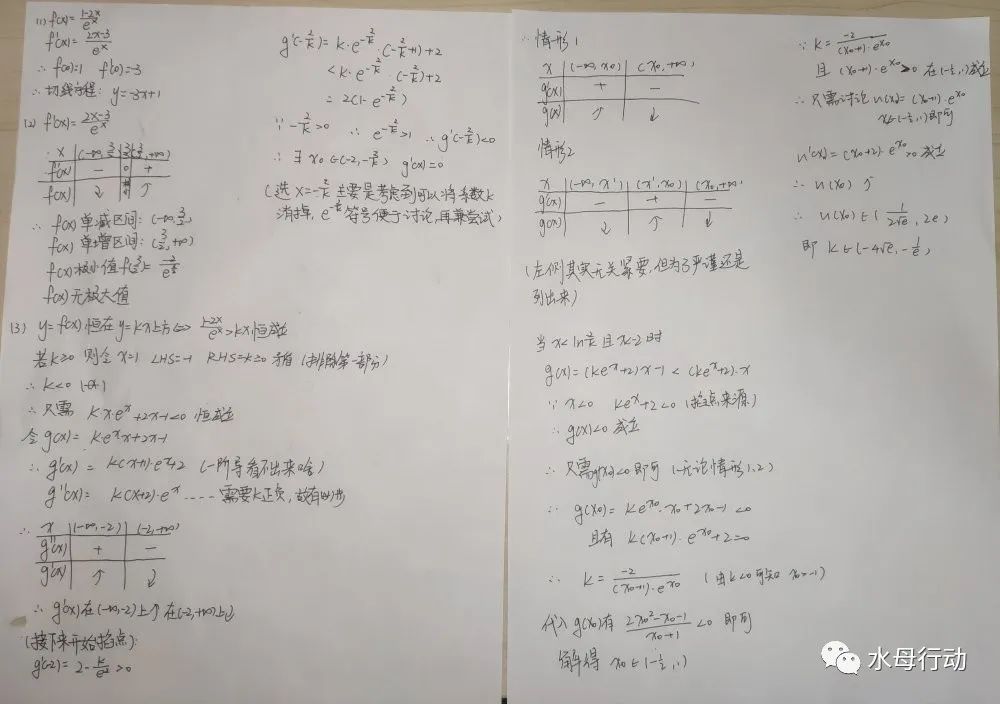 (1) f(x)=(1-2x)/e^x
f'(x)=(2x-3)/e^x
∴ f(0)=1 f'(0)=-3
∴ 切线方程: y=-3x+1
(2) f'(x)=(2x-3)/e^x
x | (-∞, 3/2) | 3/2 | (3/2, +∞)
f'(x) | - | 0 | +
f(x) | ↓ | | ↑
∴ f(x)单减区间: (-∞, 3/2)
f(x)单增区间: (3/2, +∞)
f(x)极小值 f(3/2)=
f(x)无极大值
(3) y=f(x)恒在y=kx上方⇔ (1-2x)/e^x>kx恒成立
若k≥0 则令x=1 LHS=-1 RHS=k≥0 矛盾
∴ k<0
∴ 只需 k·x·e^x+2x-1<0 恒成立
令g(x)= k·e^x·x+2x-1
∴ g'(x) = k(x+1)·e^x+2 (一阶导看不出来啥)
g''(x)= k(x+2)·e^x ---- 需要k正负,故有
∴ x | (-∞, -2) | (-2, +∞)
g''(x) | + | -
g'(x) | ↑ | ↓
∴ g'(x)在(-∞,-2)上↑在(-2,+∞)上↓
(接下来开始找点):
g'(-2)= 2-k/e²>0
g'(-2/k)= k·e^(-2/k)·(-2/k+1)+2
<k·e^(-2/k)·(-2/k)+2
= 2(1-e^(-2/k))
∵ -2/k>0 ∴ e^(-2/k)>1 ∴ g'(-2/k)<0
∴ ∃ x₀∈(-2,-2/k) g'(x)=0
(选x=-2/k主要是考虑到可以将系数k
消掉, 符号便于讨论,再兼尝试)
∴ 情形1
x | (-∞, x₀) | (x₀, +∞)
g'(x) | + | -
g(x) | ↑ | ↓
情形2
x | (-∞, x') | (x', x₀) | (x₀, +∞)
g'(x) | - | + | -
g(x) | ↓ | ↑ | ↓
(左侧其实无关紧要,但为了严谨还是
列出来)
当 且x<-2时
g(x)=(ke^x+2)·x-1<(ke^x+2)·x
∵ x<0 ke^x+2<0 (找点来源)
∴ g(x)<0 成立
∴ 只需g(x₀)<0即可 (无论情形1,2)
∴ g(x₀)= ke^x₀·x₀+2x₀-1<0
且有 k(x₀+1)·e^x₀+2=0
∴ k= -2/((x₀+1)·e^x₀) (由k<0可知 x₀>-1)
代入g(x₀)有 (2x₀²-x₀-1)/(x₀+1)<0 即可
解得 x₀∈(-1/2, 1)
∵ k= -2/((x₀+1)·e^x₀)
且 (x₀+1)·e^x₀>0 在(-1/2, 1)成立
∴ 只需讨论u(x₀)=(x₀+1)·e^x₀
x∈(-1/2, 1)即可
u'(x)=(x₀+2)·e^x₀>0 成立
∴ u(x₀) ↑
∴ u(x₀)∈(1/(2√e), 2e)
即 k∈(-4√e, -1/e)
水母行动